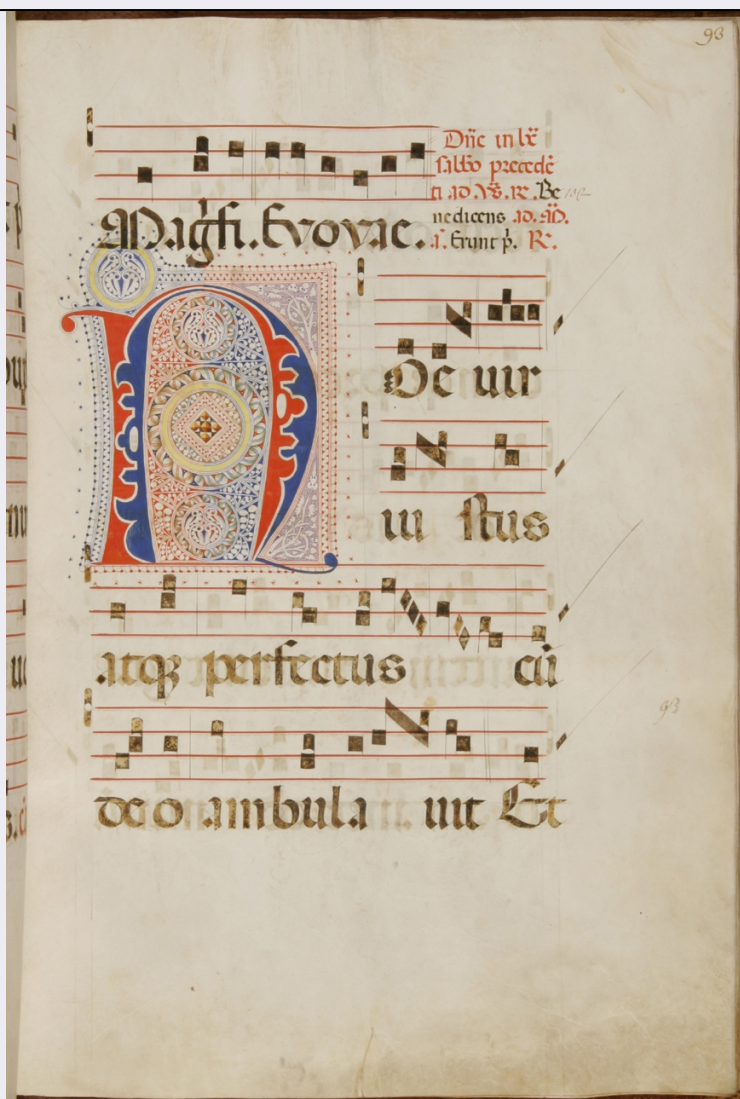 93
Dñe in lx̄
sabbo precedē
ti ad v̄s. R. Be
nedicens ad. M̄.
a. Erunt p̄. R.
Magñi. Evovae.
N
Oe uir
iu stus
atqꝫ perfectus cū
deo ambula uit Et
93